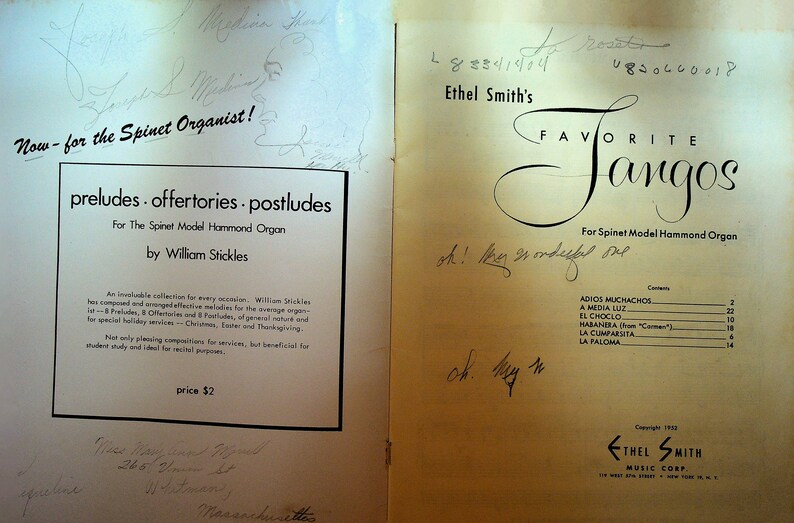 Joseph S. Medina
Joseph S Medina
Now - for the Spinet Organist!
preludes · offertories · postludes
For The Spinet Model Hammond Organ
by William Stickles
An invaluable collection for every occasion. William Stickles
has composed and arranged effective melodies for the average organ-
ist -- 8 Preludes, 8 Offertories and 8 Postludes, of general nature and
for special holiday services -- Christmas, Easter and Thanksgiving.
Not only pleasing compositions for services, but beneficial for
student study and ideal for recital purposes.
price $2
Miss Mary Ann
265 Union St
Whitman,
Massachusetts
L 8 3341404
U 820660018
Ethel Smith's
FAVORITE
Tangos
For Spinet Model Hammond Organ
oh! My Wonderful one
Contents
ADIOS MUCHACHOS 2
A MEDIA LUZ 22
EL CHOCLO 10
HABANERA (from "Carmen") 18
LA CUMPARSITA 6
LA PALOMA 14
oh. My W
Copyright 1952
ETHEL SMITH
MUSIC CORP.
119 WEST 57th STREET • NEW YORK 19, N. Y.